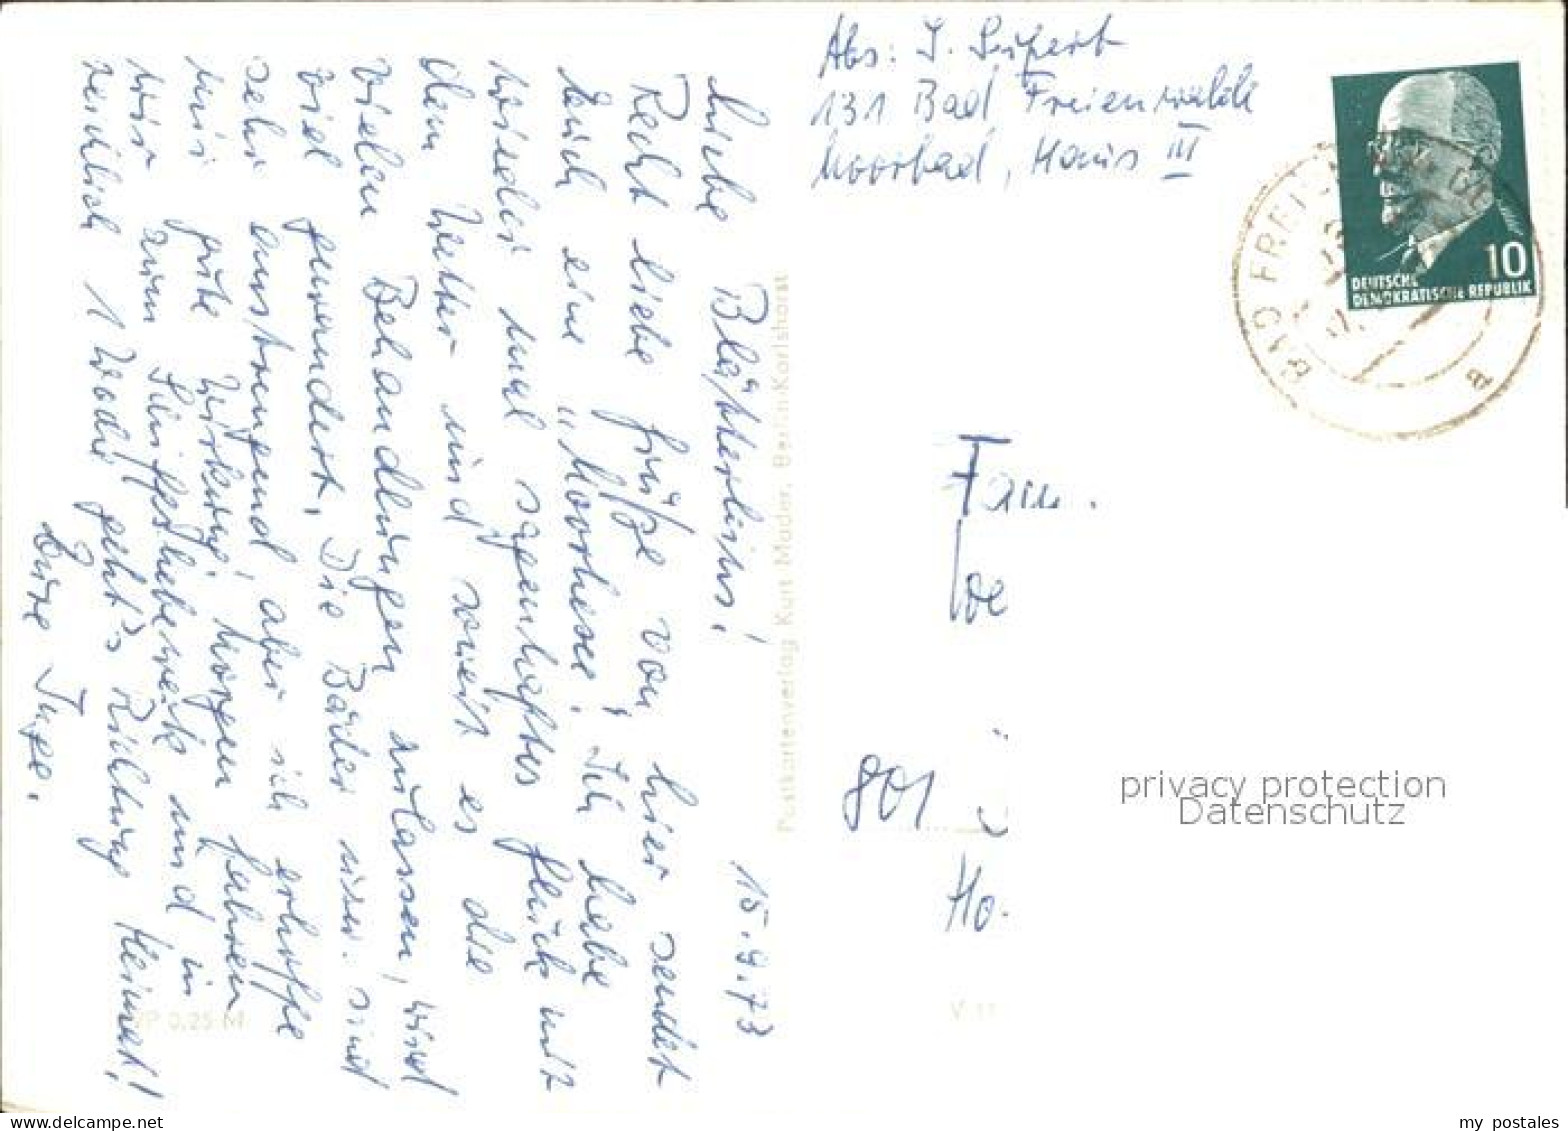 Liebe Blätterleins!
15.9.73
Recht liebe Grüße von hier sendet
Euch eine "Moorhexe". Ich habe
wieder mal sagenhaftes Glück mit
dem Wetter und soweit es die
vielen Behandlungen zulassen, wird
viel gewandert. Die Bäder usw. sind
sehr anstrengend, aber ich erhoffe
mir gute Wirkung. Morgen fahren
wir zum Schiffshebewerk und in
reichlich 1 Woche geht's Richtung Heimat!
Eure Inge.
Postkartenverlag Kurt Mader, Berlin-Karlshorst
EVP 0,25 M
Abs: I. Seifert
131 Bad Freienwalde
Moorbad, Haus III
10
DEUTSCHE
DEMOKRATISCHE REPUBLIK
BAD FREIENWALDE
a
Fam.
801
Ho.
V 11
privacy protection
Datenschutz
www.delcampe.net
my_postales